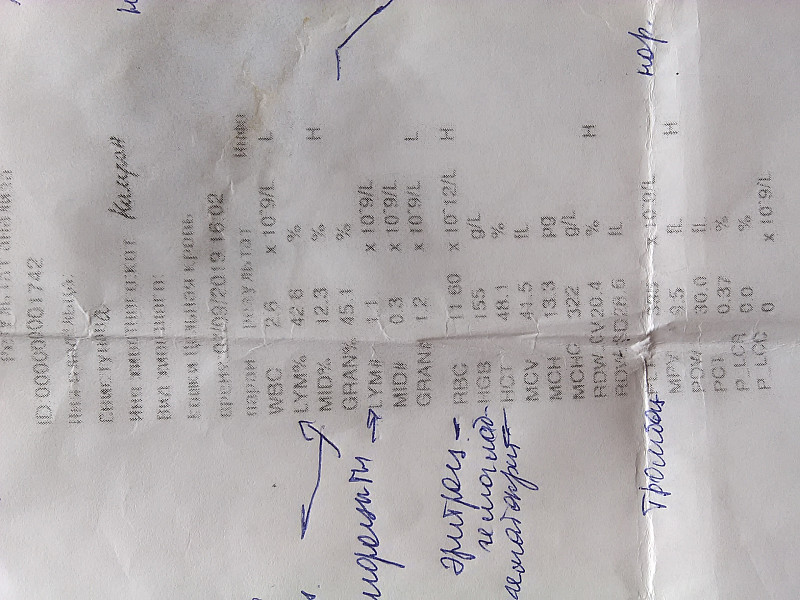 Результат анализа
ID 00000001742
Имя животного:кот Камрон
Вид животного:
Цельная кровь
время 2019 16:02
парам результат инфо
WBC 2.6 x 10^9/L L
LYM% 42.6 %
MID% 12.3 % H
GRAN% 45.1 %
LYM# 1.1 x 10^9/L
MID# 0.3 x 10^9/L
GRAN# 1.2 x 10^9/L L
RBC 11.60 x 10^12/L H
HGB 155 g/L
HCT 48.1 %
MCV 41.5 fL
MCH 13.3 pg
MCHC 322 g/L
RDW_CV 20.4 % H
RDW_SD 28.6 fL
x 10^9/L
MPV 9.5 fL H
PDW 30.0 fL
PCT 0.37 %
P_LCR 0.0 %
P_LCC 0 x 10^9/L
эритроц
гемоглоб
гематокрит
Тромбоц
нор.